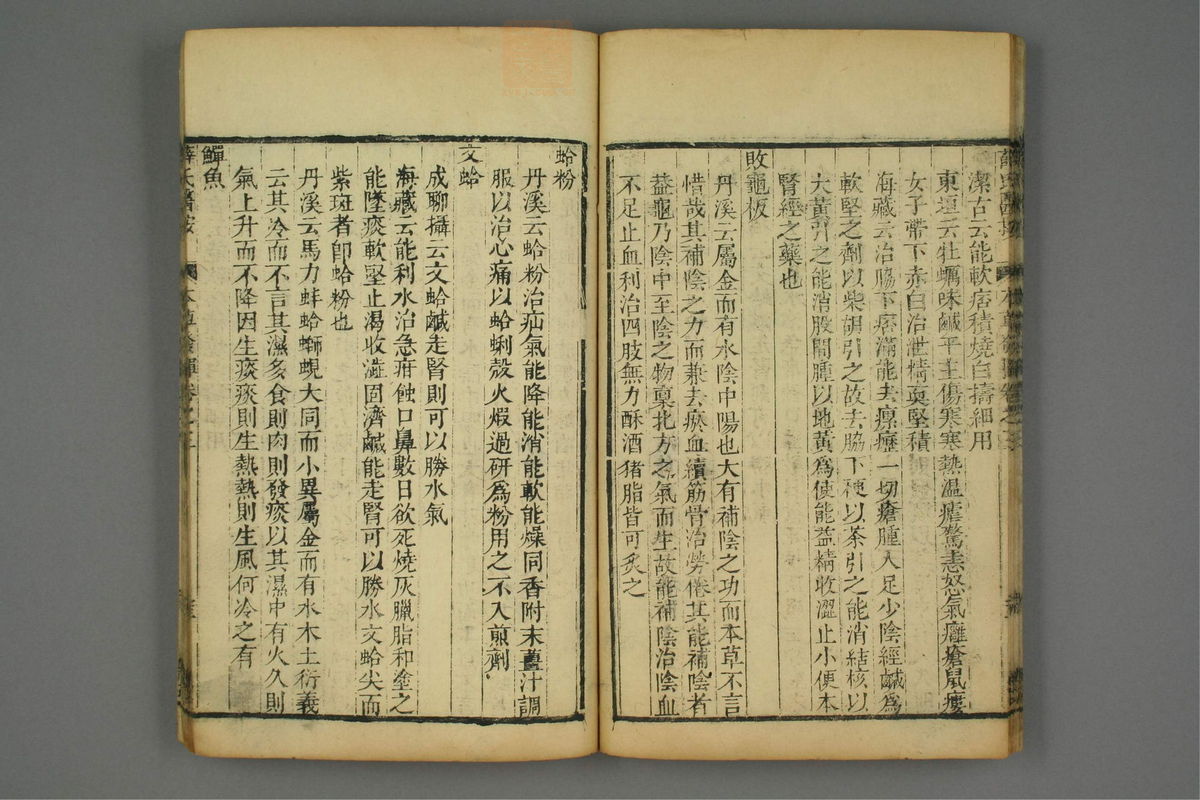 潔古云能軟痞積燒白擣細用
東垣云牡蠣味鹹平主傷寒寒熱溫瘧驚恚怒氣癰瘡鼠瘻
女子帶下赤白治泄精耎堅積
海藏云治脇下痞滿能去瘰癧一切瘡腫入足少陰經鹹爲
軟堅之劑以柴胡引之故去脇下硬以茶引之能消結核以
大黃引之能消股間腫以地黃爲使能益精收澀止小便本
腎經之藥也
敗龜板
丹溪云屬金而有水陰中陽也大有補陰之功而本草不言
惜哉其補陰之力而兼去瘀血續筋骨治勞倦其能補陰者
葢龜乃陰中至陰之物禀北方之氣而生故能補陰治陰血
不足止血利治四肢無力酥酒猪脂皆可炙之
蛤粉
丹溪云蛤粉治疝氣能降能消能軟能燥同香附末薑汁調
服以治心痛以蛤蜊殼火煅過研爲粉用之不入煎劑
文蛤
成聊攝云文蛤鹹走腎則可以勝水氣
海藏云能利水治急疳蝕口鼻數日欲死燒灰臘脂和塗之
能墜痰軟堅止渴收澀固濟鹹能走腎可以勝水文蛤尖而
紫斑者卽蛤粉也
丹溪云馬力蚌蛤螄蜆大同而小異屬金而有水木土衍義
云其冷而不言其濕多食則肉則發痰以其濕中有火久則
氣上升而不降因生痰痰則生熱熱則生風何冷之有
鱓魚
薛氏醫按 本草發揮卷之三